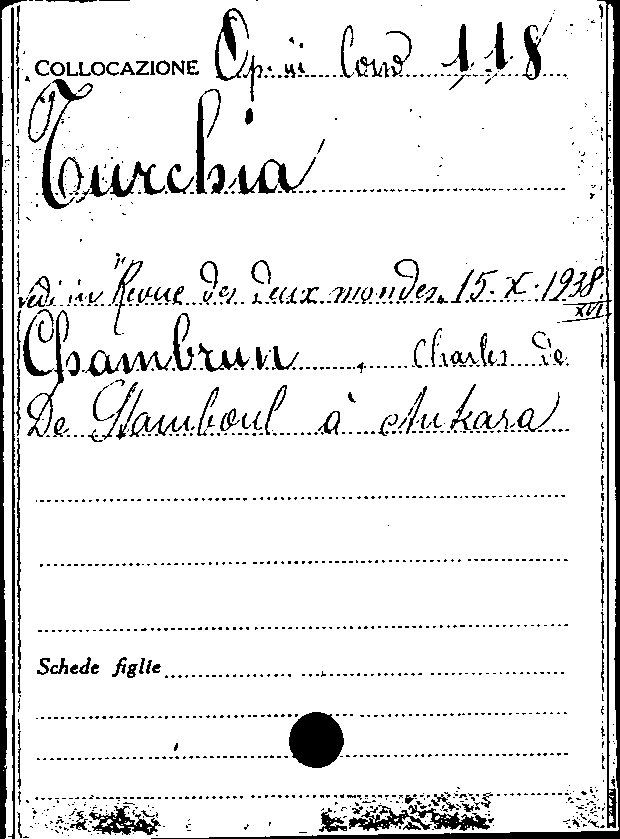 COLLOCAZIONE Op. in Corso 118
Turchia
vedi in "Revue des deux mondes" 15-X-1938
XVI
Chambrun, Charles de
De Stamboul à Ankara
Schede figlie